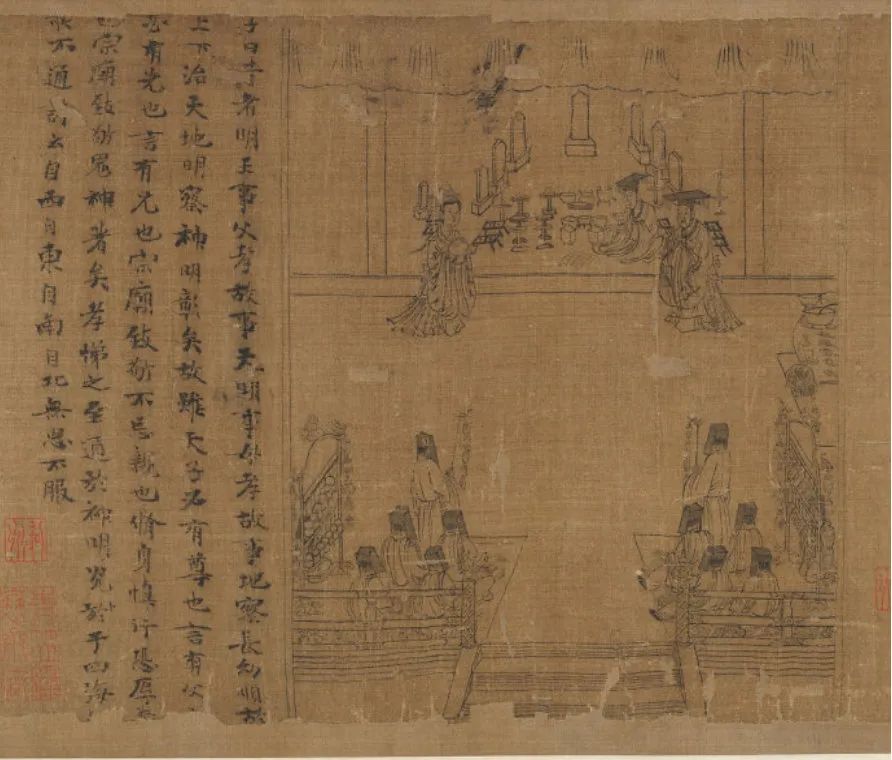 子曰昔者明王事父孝故事天明事母孝故事地察長幼順故
上下治天地明察神明彰矣故雖天子必有尊也言有父
必有先也言有兄也宗廟致敬不忘親也脩身慎行恐辱
宗廟致敬鬼神著矣孝悌之至通於神明光於于四海
不通詩云自西自東自南自北無思不服